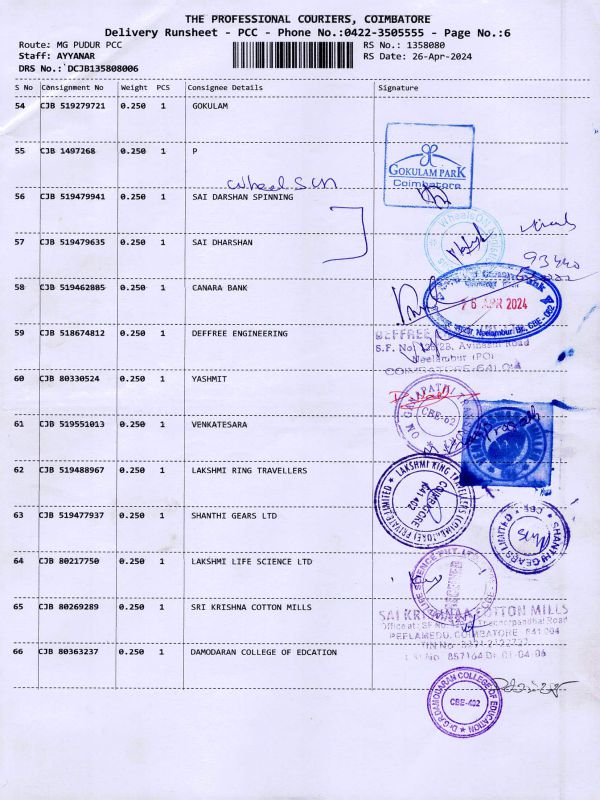 THE PROFESSIONAL COURIERS, COIMBATORE
Delivery Runsheet - PCC - Phone No.:0422-3505555 - Page No.:6
Route: MG PUDUR PCC
RS No.: 1358080
Staff: AYYANAR
RS Date: 26-Apr-2024
DRS No.:`DCJB135808006
S No Consignment No Weight PCS Consignee Details Signature
54 CJB 519279721 0.250 1 GOKULAM
GOKULAM PARK
Coimbatore
55 CJB 1497268 0.250 1 P
56 CJB 519479941 0.250 1 SAI DARSHAN SPINNING
57 CJB 519479635 0.250 1 SAI DHARSHAN
58 CJB 519462885 0.250 1 CANARA BANK
APR 2024
Neelambur Br. CBE-062
59 CJB 518674812 0.250 1 DEFFREE ENGINEERING
DEFFREE
S.F. No. Avinashi Road
Neelambur (PO)
60 CJB 80330524 0.250 1 YASHMIT
OM GANAPATHI
CBE-62
61 CJB 519551013 0.250 1 VENKATESARA
62 CJB 519488967 0.250 1 LAKSHMI RING TRAVELLERS
LAKSHMI RING TRAVELLERS (COIMBATORE) PRIVATE LIMITED
COIMBATORE
641 402
63 CJB 519477937 0.250 1 SHANTHI GEARS LTD
SHANTHI GEARS LIMITED
64 CJB 80217750 0.250 1 LAKSHMI LIFE SCIENCE LTD
LIFE SCIENCE PVT. LTD
65 CJB 80269289 0.250 1 SRI KRISHNA COTTON MILLS
SAI KRISHNAA COTTON MILLS
Office at : SF No. Thaneerpandhal Road
PEELAMEDU, COIMBATORE 641 004
66 CJB 80363237 0.250 1 DAMODARAN COLLEGE OF EDCATION
Dr.G.R.DAMODARAN COLLEGE OF EDUCATION
CBE-402